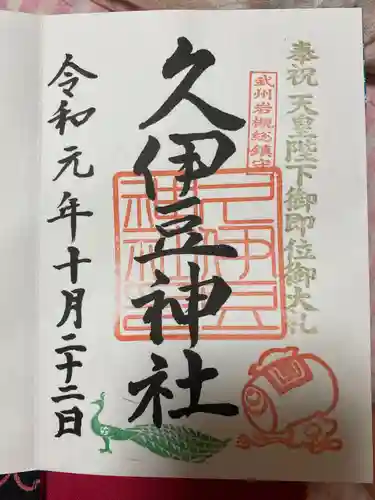 奉祝 天皇陛下御即位御大礼
武州岩槻総鎮守
久伊豆神社
令和元年十月二十二日